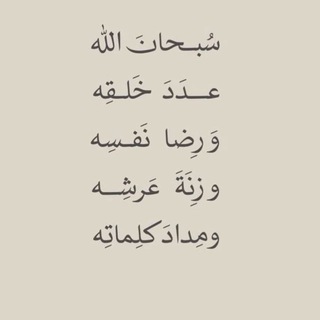 سُبـحانَ الله
عـــدَدَ خَلـقِه
وَرِضا نَفـسِـه
وزِنَةَ عَرشِـــه
ومِدادَ كلِماتِه